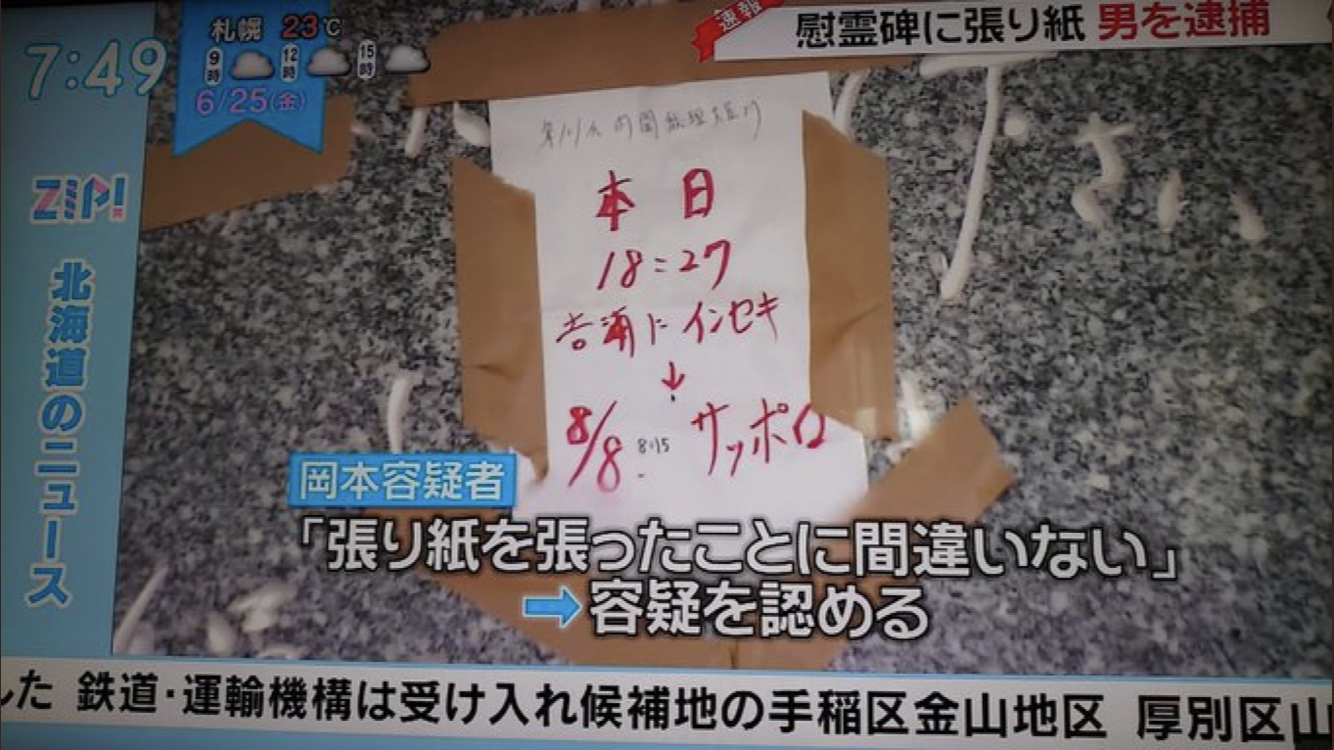 7:49
札幌 23℃
9時 12時 15時
6/25(金)
ZIP!
北海道のニュース
速報
慰霊碑に張り紙 男を逮捕
内閣総理大臣
本日
18:27
吉浦にインセキ
↓
8/8 8:15 サッポロ
岡本容疑者
「張り紙を張ったことに間違いない」
➡容疑を認める
した 鉄道・運輸機構は受け入れ候補地の手稲区金山地区 厚別区山